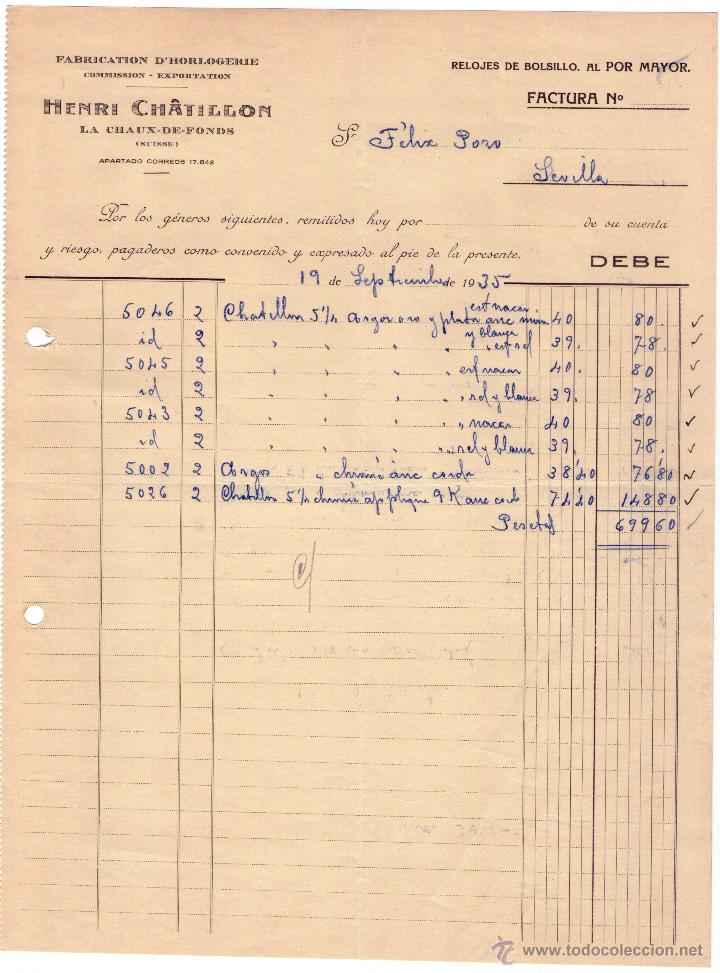 FABRICATION D'HORLOGERIE
COMMISSION - EXPORTATION
HENRI CHÂTILLON
LA CHAUX-DE-FONDS
(SUISSE)
APARTADO CORREOS 17.842
RELOJES DE BOLSILLO. AL POR MAYOR.
FACTURA Nº
Sr Félix Pozo
Sevilla
Por los géneros siguientes, remitidos hoy por de su cuenta
y riesgo, pagaderos como convenido y expresado al pie de la presente.
DEBE
19 de Septiembre de 1935
est nacar
5046 2 Chatillon 5 1/2 Argos oro y plata anc 40 80. ✓
y blanca
id 2 " " " " est rel 39. 78. ✓
5045 2 " " " " est nacar 40. 80 ✓
id 2 " " " " rel y blanca 39. 78 ✓
5043 2 " " " " nacar 40 80 ✓
id 2 " " " " rel y blanca 39. 78. ✓
5002 2 Argos " chromé anc corde 38'40 76'80 ✓
5026 2 Chatillon 5 1/2 chromé applique 9 K anc 74'40 148'80 ✓
Pesetas 699 60 ✓
www.todocoleccion.net